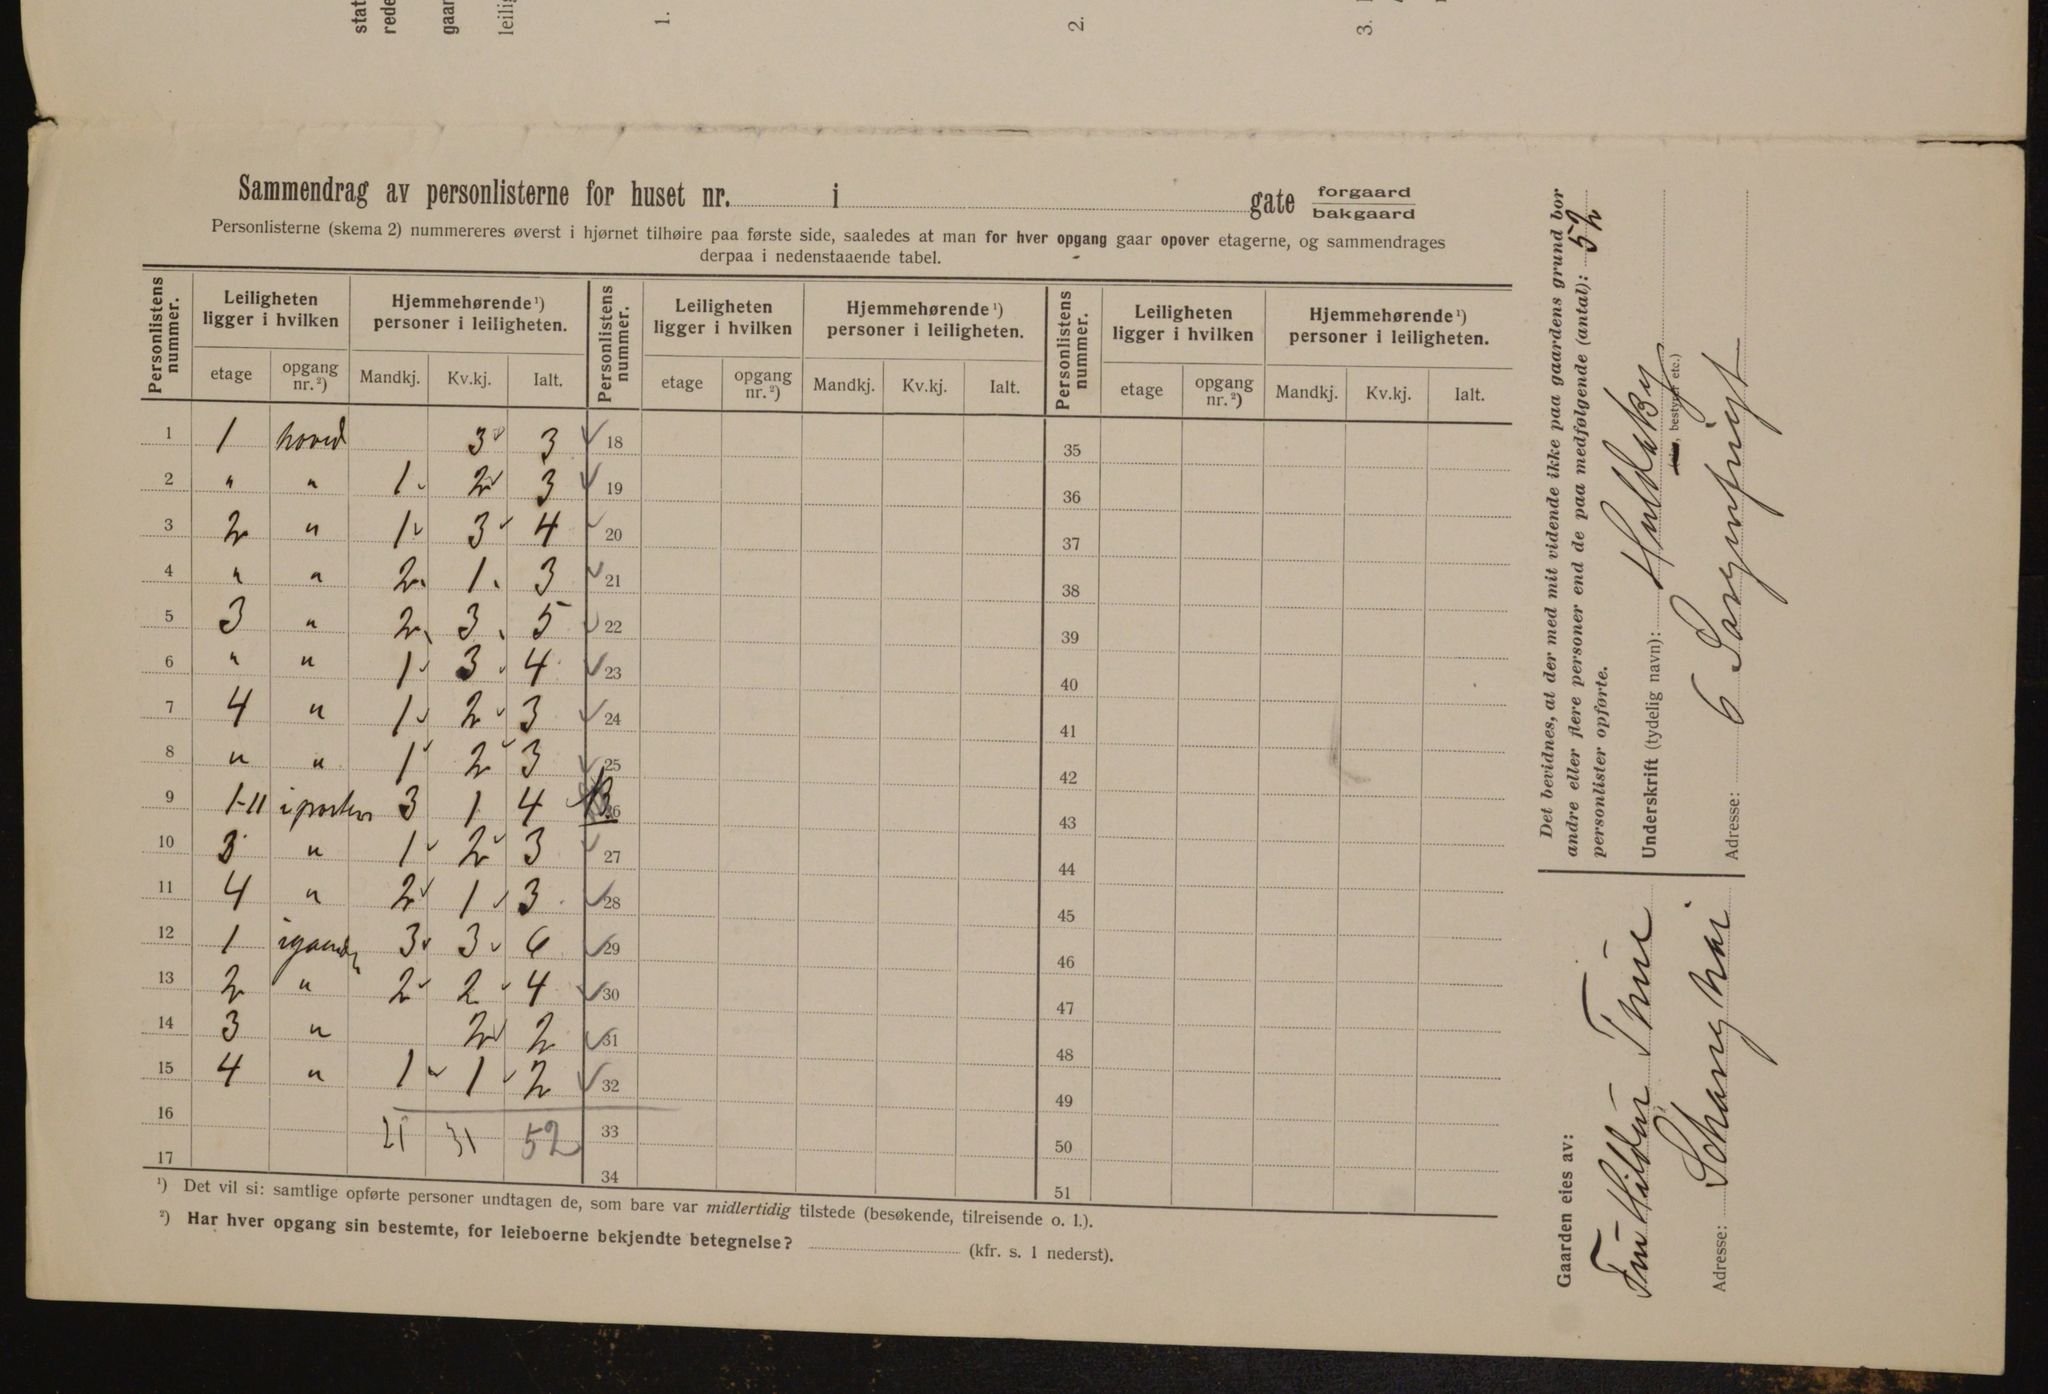 stat
rede
gaar
leilig
1.
2.
3.
Sammendrag av personlisterne for huset nr. i gate forgaard
bakgaard
Personlisterne (skema 2) nummereres øverst i hjørnet tilhøire paa første side, saaledes at man for hver opgang gaar opover etagerne, og sammendrages
derpaa i nedenstaaende tabel.
Personlistens nummer. Leiligheten ligger i hvilken Hjemmehørende ¹) personer i leiligheten. Personlistens nummer. Leiligheten ligger i hvilken Hjemmehørende ¹) personer i leiligheten. Personlistens nummer. Leiligheten ligger i hvilken Hjemmehørende ¹) personer i leiligheten.
etage opgang nr. ²) Mandkj. Kv.kj. Ialt. etage opgang nr. ²) Mandkj. Kv.kj. Ialt. etage opgang nr. ²) Mandkj. Kv.kj. Ialt.
1 1 hoved 3 3 18 35
2 " " 1 2 3 19 36
3 2 " 1 3 4 20 37
4 " " 2 1 3 21 38
5 3 " 2 3 5 22 39
6 " " 1 3 4 23 40
7 4 " 1 2 3 24 41
8 " " 1 2 3 25 42
9 1-11 i porten 3 1 4 26 43
10 3 " 1 2 3 27 44
11 4 " 2 1 3 28 45
12 1 i gaarden 3 3 6 29 46
13 2 " 2 2 4 30 47
14 3 " 2 2 31 48
15 4 " 1 1 2 32 49
16 21 31 52 33 50
17 34 51
¹) Det vil si: samtlige opførte personer undtagen de, som bare var midlertidig tilstede (besøkende, tilreisende o. l.).
²) Har hver opgang sin bestemte, for leieboerne bekjendte betegnelse? (kfr. s. 1 nederst).
Det bevidnes, at der med mit vidende ikke paa gaardens grund bor
andre eller flere personer end de paa medfølgende (antal): 52
personlister opførte.
Underskrift (tydelig navn):
(eier, bestyrer etc.)
Adresse: 6
Gaarden eies av:
Adresse: Schanghai